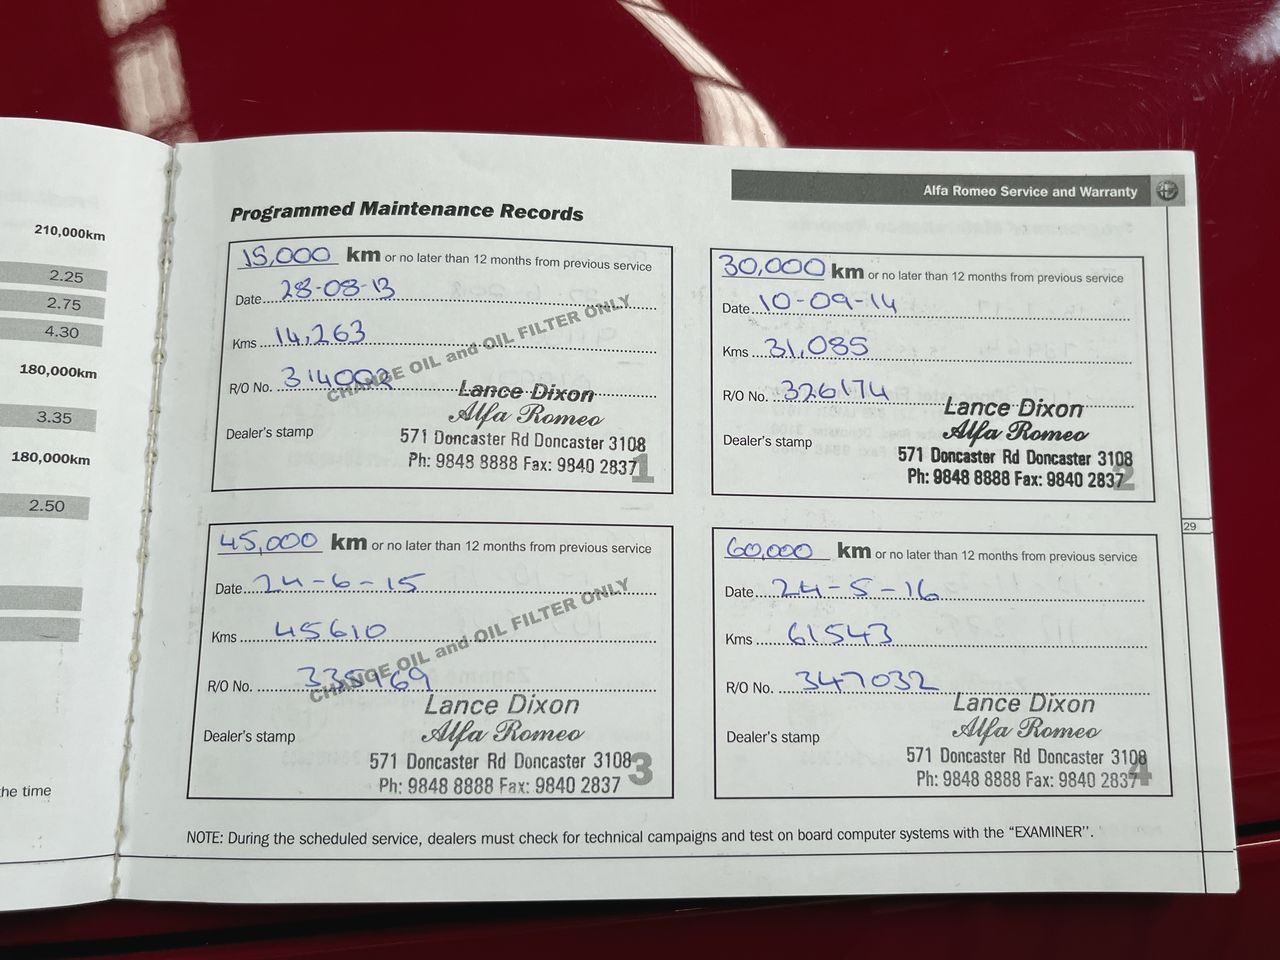 210,000km
2.25
2.75
4.30
180,000km
3.35
180,000km
2.50
he time
Alfa Romeo Service and Warranty
Programmed Maintenance Records
15,000 km or no later than 12 months from previous service
Date 28-08-13
Kms 14,263
R/O No. 314002
CHANGE OIL and OIL FILTER ONLY
Dealer's stamp
Lance Dixon
Alfa Romeo
571 Doncaster Rd Doncaster 3108
Ph: 9848 8888 Fax: 9840 2837
1
30,000 km or no later than 12 months from previous service
Date 10-09-14
Kms 31,085
R/O No. 326174
Dealer's stamp
Lance Dixon
Alfa Romeo
571 Doncaster Rd Doncaster 3108
Ph: 9848 8888 Fax: 9840 2837
2
45,000 km or no later than 12 months from previous service
Date 24-6-15
Kms 45610
R/O No.
CHANGE OIL and OIL FILTER ONLY
Dealer's stamp
Lance Dixon
Alfa Romeo
571 Doncaster Rd Doncaster 3108
Ph: 9848 8888 Fax: 9840 2837
3
60,000 km or no later than 12 months from previous service
Date 24-5-16
Kms 61543
R/O No. 347032
Dealer's stamp
Lance Dixon
Alfa Romeo
571 Doncaster Rd Doncaster 3108
Ph: 9848 8888 Fax: 9840 2837
4
29
NOTE: During the scheduled service, dealers must check for technical campaigns and test on board computer systems with the "EXAMINER".